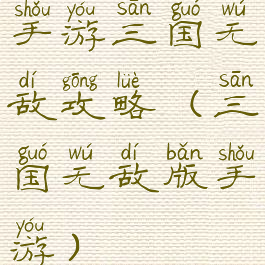 shǒu yóu sān guó wú
手游三国无
dí gōng lüè sān
敌攻略（三
guó wú dí bǎn shǒu
国无敌版手
yóu
游）